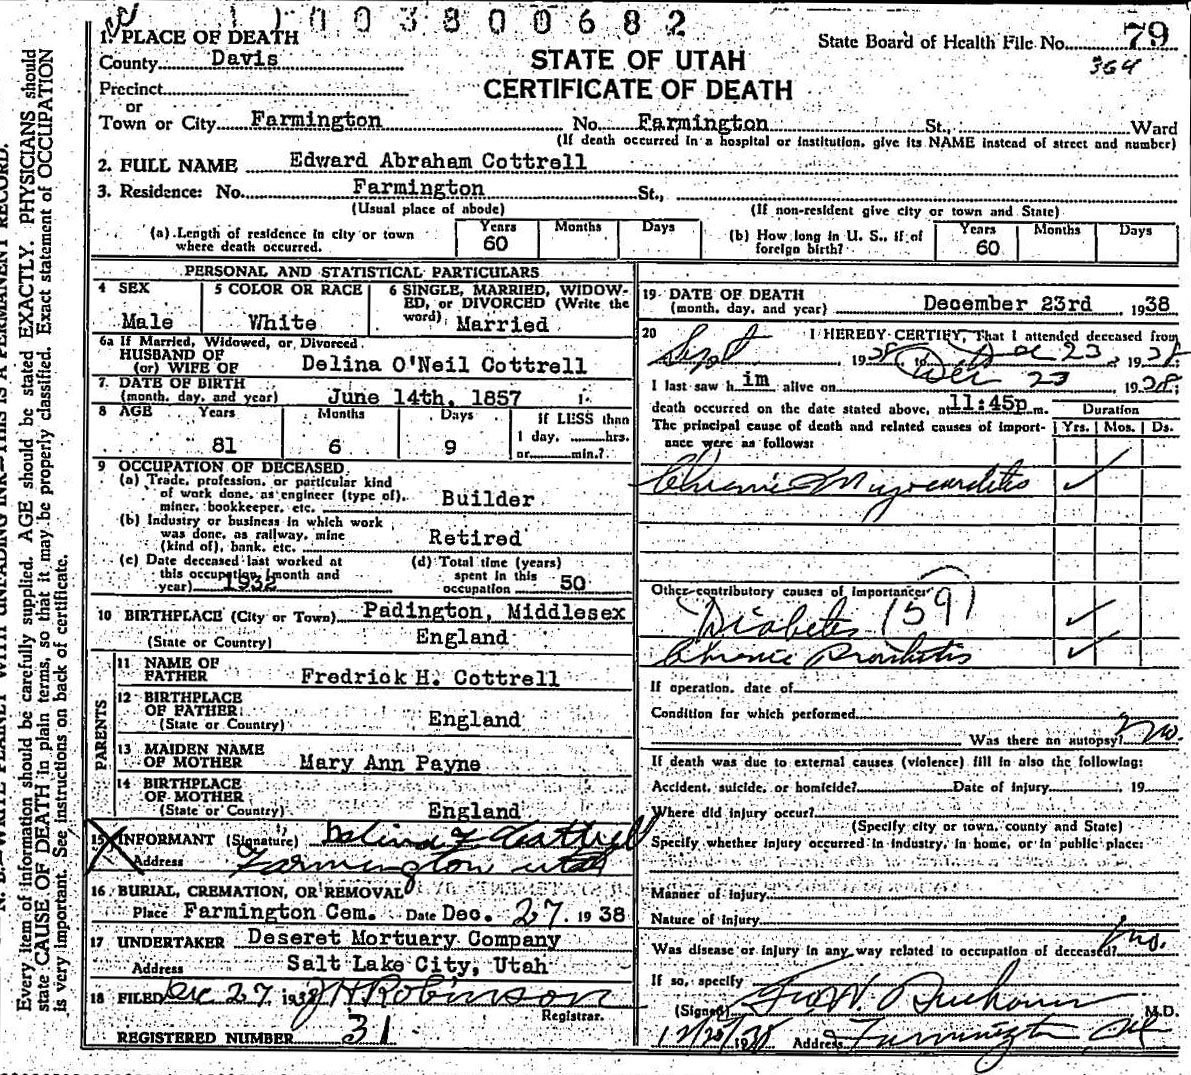 1 1 0 0 3 8 0 0 6 8 2
1. PLACE OF DEATH
County Davis
Precinct
or
Town or City Farmington No. Farmington St., Ward
(If death occurred in a hospital or institution, give its NAME instead of street and number)
State Board of Health File No. 79
364
STATE OF UTAH
CERTIFICATE OF DEATH
2. FULL NAME Edward Abraham Cottrell
3. Residence: No. Farmington St.,
(Usual place of abode) (If non-resident give city or town and State)
(a) Length of residence in city or town where death occurred. Years 60 Months Days
(b) How long in U. S., if of foreign birth? Years 60 Months Days
PERSONAL AND STATISTICAL PARTICULARS
4 SEX Male
5 COLOR OR RACE White
6 SINGLE, MARRIED, WIDOWED, or DIVORCED (Write the word) Married
6a If Married, Widowed, or Divorced
HUSBAND OF
(or) WIFE OF Delina O'Neil Cottrell
7. DATE OF BIRTH
(month, day, and year) June 14th, 1857
8 AGE Years 81 Months 6 Days 9 If LESS than 1 day, hrs. or min.?
9 OCCUPATION OF DECEASED
(a) Trade, profession, or particular kind of work done, as engineer (type of), miner, bookkeeper, etc. Builder
(b) Industry or business in which work was done, as railway, mine (kind of), bank, etc. Retired
(c) Date deceased last worked at this occupation (month and year) 1932
(d) Total time (years) spent in this occupation 50
10 BIRTHPLACE (City or Town) Padington, Middlesex
(State or Country) England
PARENTS
11 NAME OF FATHER Fredrick H. Cottrell
12 BIRTHPLACE OF FATHER
(State or Country) England
13 MAIDEN NAME OF MOTHER Mary Ann Payne
14 BIRTHPLACE OF MOTHER
(State or Country) England
15 INFORMANT (Signature) Delina F Cottrell
Address Farmington Utah
16 BURIAL, CREMATION, OR REMOVAL
Place Farmington Cem. Date Dec. 27, 1938
17 UNDERTAKER Deseret Mortuary Company
Address Salt Lake City, Utah
18 FILED Dec 27 1938 J H Robinson
Registrar.
REGISTERED NUMBER 31
19 DATE OF DEATH
(month, day, and year) December 23rd 1938
20 I HEREBY CERTIFY, That I attended deceased from
Sept 1938 to Dec 23, 1938
I last saw him alive on Dec 23 1938;
death occurred on the date stated above, at 11:45p m.
The principal cause of death and related causes of importance were as follows:
Duration
Yrs. Mos. Ds.
Chronic Myocarditis ✓
Other contributory causes of importance:
Diabetes (59) ✓
Chronic Bronchitis ✓
If operation, date of
Condition for which performed
Was there an autopsy? No.
If death was due to external causes (violence) fill in also the following:
Accident, suicide, or homicide? Date of injury 19
Where did injury occur?
(Specify city or town, county and State)
Specify whether injury occurred in industry, in home, or in public place:
Manner of injury
Nature of injury
Was disease or injury in any way related to occupation of deceased? No.
If so, specify
(Signed) M.D.
1938 Address Farmington
Every item of information should be carefully supplied. AGE should be stated EXACTLY. PHYSICIANS should
state CAUSE OF DEATH in plain terms, so that it may be properly classified. Exact statement of OCCUPATION
is very important. See instructions on back of certificate.